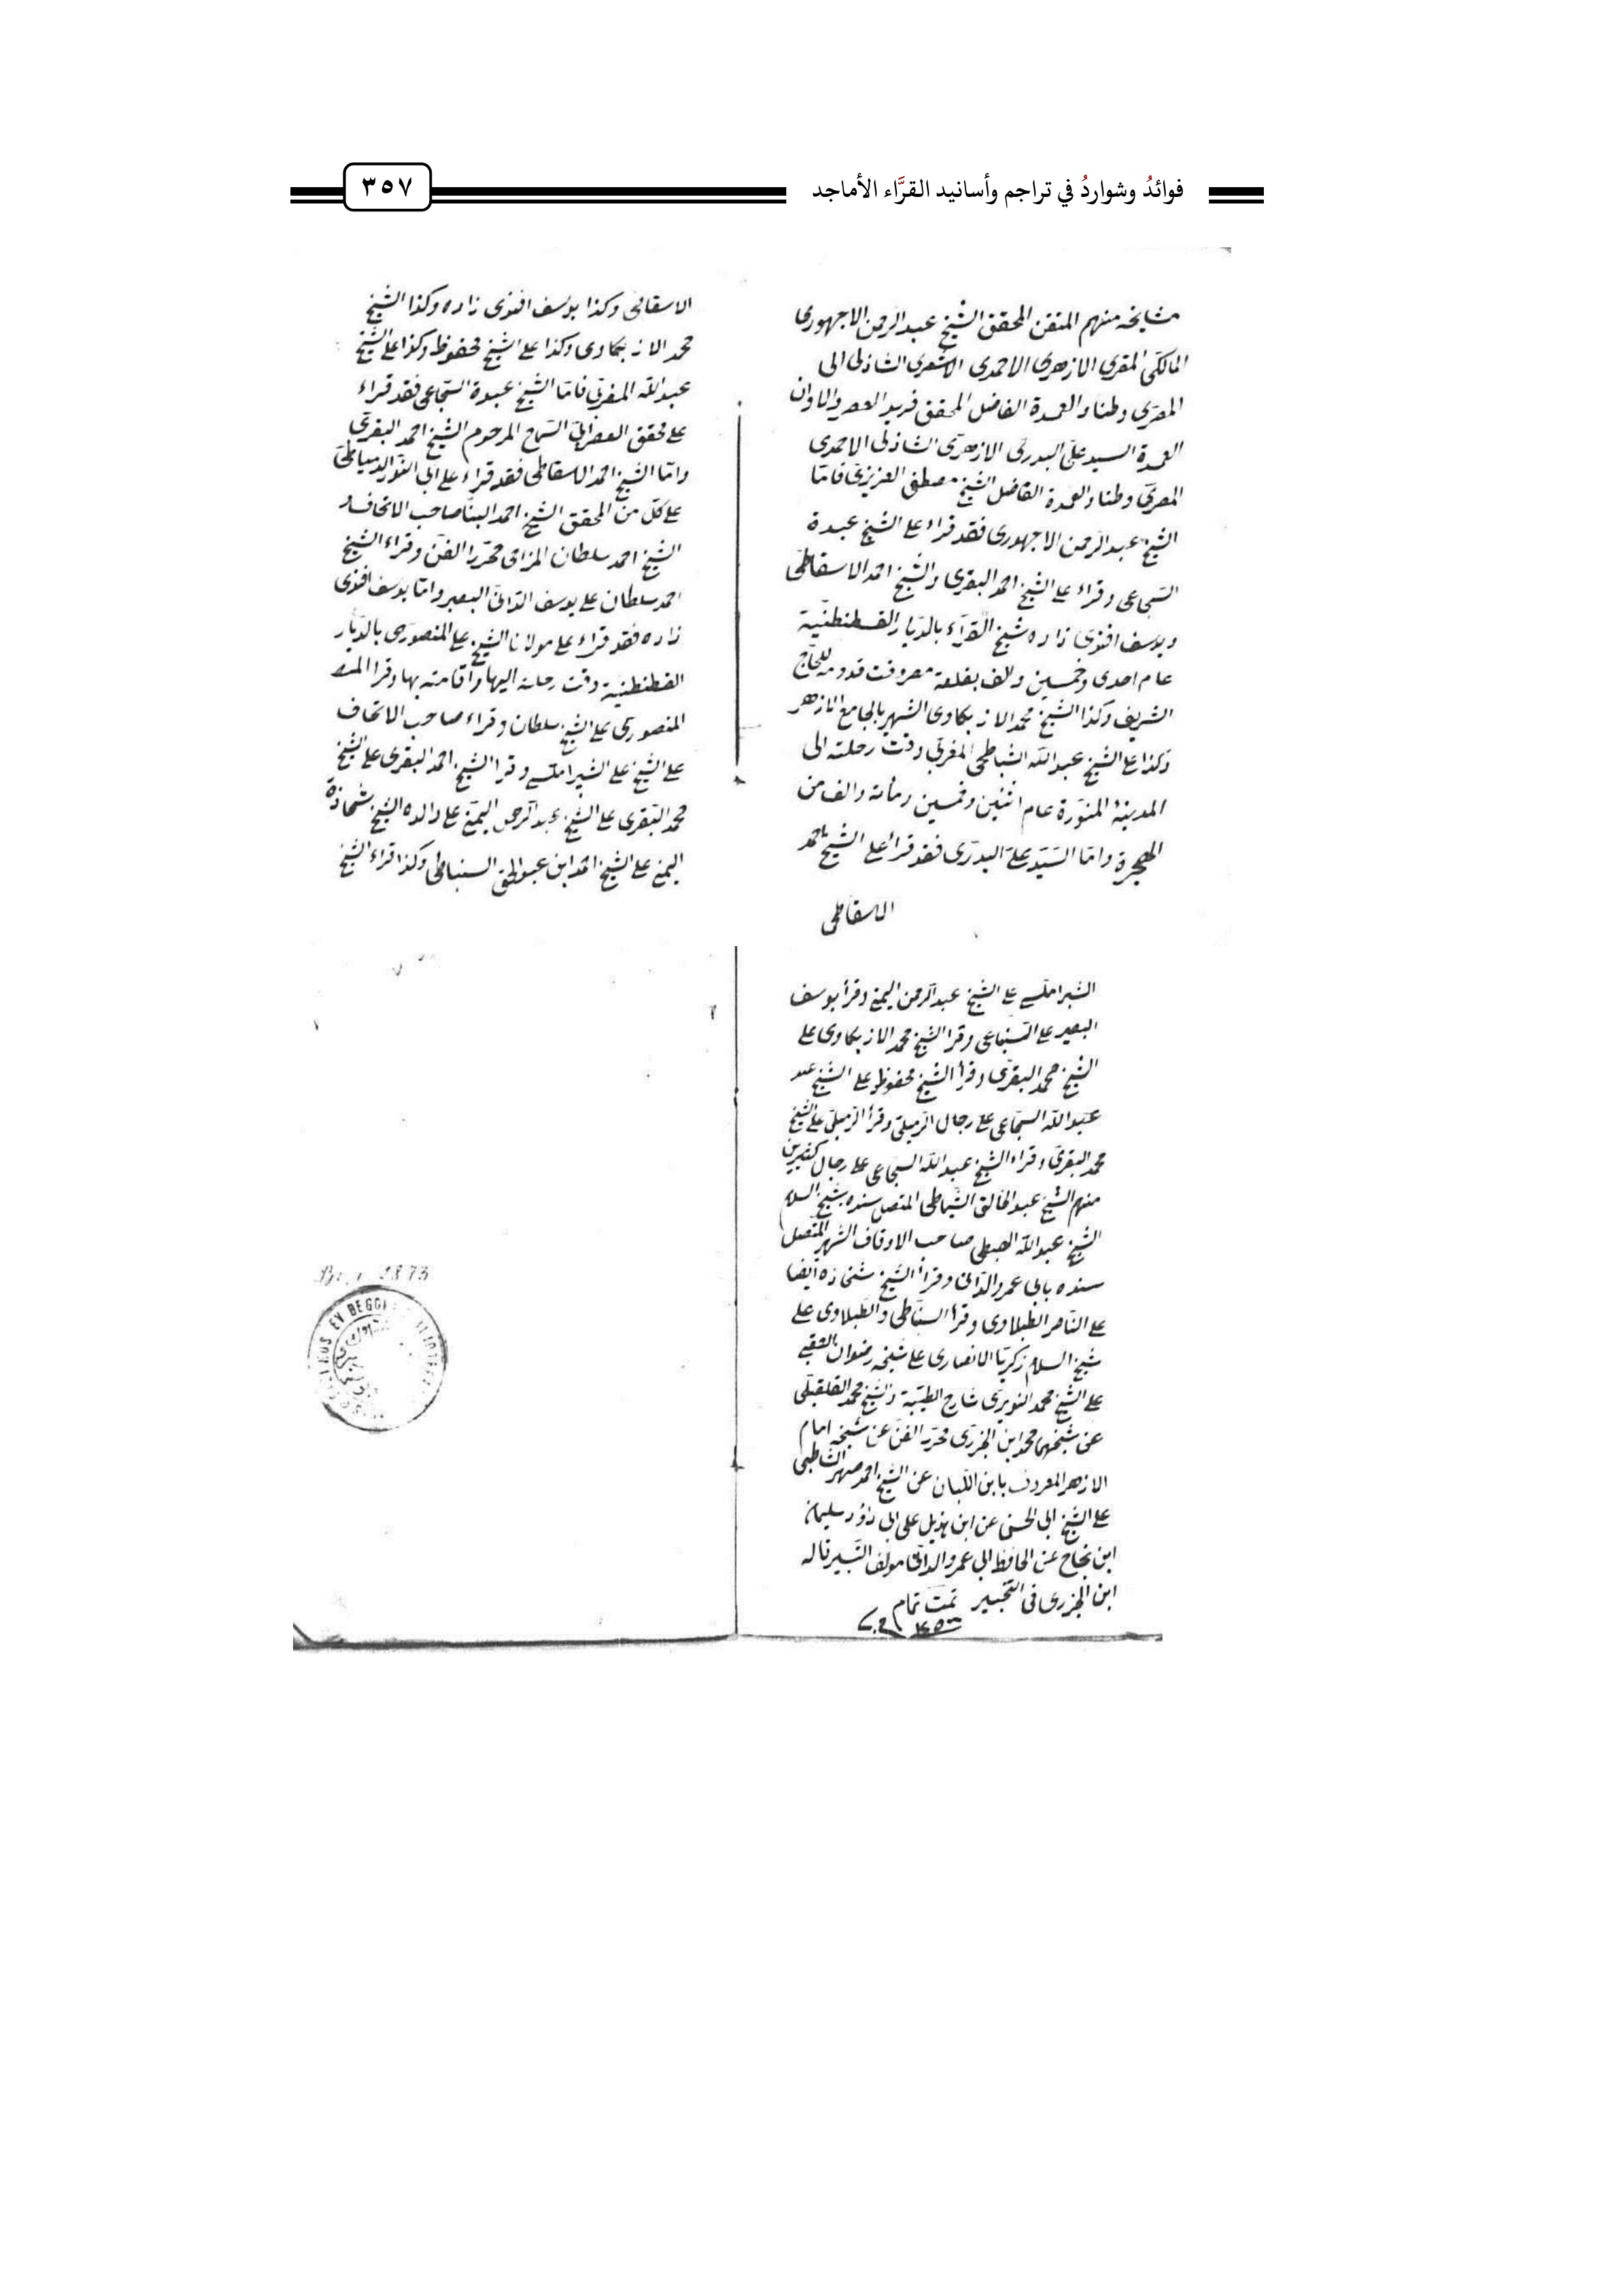 فوائدُ وشواردُ في تراجم وأسانيد القرَّاء الأماجد
٣٥٧
مشايخه منهم المتقن المحقق الشيخ عبد الرحمن الاجهورى
المالكى المقرى الازهرى الاحمدى الاشعرى الشاذلى
المصرى وطنا والعمدة الفاضل المحقق فريد العصر والاوان
العمدة السيد على البدرى الازهرى الشاذلى الاحمدى
المصرى وطنا والعمدة الفاضل الشيخ مصطفى العزيزى فامّا
الشيخ عبد الرحمن الاجهورى فقد قراء على الشيخ عبدة
السجاعى وقراء على الشيخ احمد البقرى والشيخ احمد الاسقاطى
ويوسف افندى زاده شيخ القرّاء بالديار القسطنطنية
عام احدى وخمسين والف بقلعة مصر وقت قدومه للحاج
الشريف وكذا الشيخ محمد الازبكاوى الشهير بالجامع الازهر
وكذا على الشيخ عبد الله الشباطى المغربى وقت رحلته الى
المدينة المنوّرة عام اثنين وخمسين ومائة والف من
الهجرة وامّا السيّد على البدرى فقد قرأ على الشيخ احمد
الاسقاطى
الاسقاطى وكذا يوسف افندى زاده وكذا الشيخ
محمد الازبكاوى وكذا على الشيخ محفوظ وكذا على الشيخ
عبد الله المغربى فامّا الشيخ عبدة السجاعى فقد قراء
على محقق العصر المرحوم الشيخ احمد البقرى
وامّا الشيخ احمد الاسقاطى فقد قراء على ابى النّور الدمياطى
على كلّ من المحقق الشيخ احمد البنا صاحب الاتحاف و
الشيخ احمد سلطان المزاحى محرّر الفنّ وقراء الشيخ
احمد سلطان على يوسف الدانىّ البصير وامّا يوسف افندى
زاده فقد قراء على مولانا الشيخ على المنصورى بالديار
القسطنطنية وقت رحلته اليها واقامته بها وقرا
المنصورى على الشيخ سلطان وقراء صاحب الاتحاف
على الشيخ على الشبراملسى وقرا الشيخ احمد البقرى على الشيخ
محمد البقرى على الشيخ عبد الرحمن اليمنى على والده الشيخ شحاذة
اليمنى على الشيخ احمد ابن عبد الحق السنباطى وكذا قراء الشيخ
الشبراملسى على الشيخ عبد الرحمن اليمنى وقرأ يوسف
البصير على وقرا الشيخ محمد الازبكاوى على
الشيخ محمد البقرى وقرأ الشيخ محفوظ على الشيخ
عبد الله السجاعى على رجال الرميلى وقرأ الرميلى على الشيخ
محمد البقرى وقراء الشيخ عبد الله السجاعى على رجال كثيرين
منهم الشيخ عبد الخالق المتصل سنده بشيخ السلام
الشيخ عبد الله الهبطى صاحب الاوقاف الشهير المتصل
سنده بابى عمرو الدانى وقرأ الشيخ شحاذه ايضا
على الناصر الطبلاوى وقرأ السنباطى والطبلاوى على
شيخ السلام زكريّا الانصارى على شيخه رضوان العقبى
على الشيخ محمد النويرى شارح الطيّبة والشيخ محمد القلقيلى
عن شيخهما محمد ابن الجزرى محرّر الفنّ عن شيخه امام
الازهر المعروف بابن اللبان عن الشيخ احمد صهر الشاطبى
على الشيخ ابى الحسن عن ابن هذيل على ابى داؤد سليمان
ابن نجاح عن الحافظ ابى عمرو الدانى مؤلف التيسير قاله
ابن الجزرى فى التحبير تمت تمام